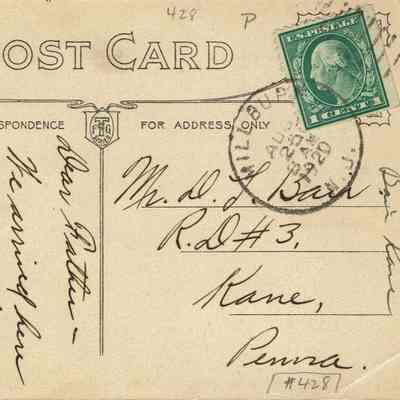 428 P
POST CARD
U.S. POSTAGE
SPONDENCE
FOR ADDRESS ONLY
MILLBURN
AUG
N.J.
Dear Father –
We arrived here
Mr. D. L.
R.D #3,
Kane,
Penna.
#428